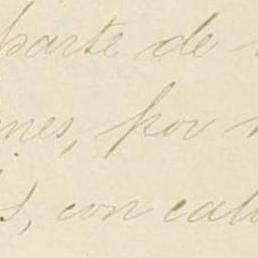 parte de
nes, por
s, con cab